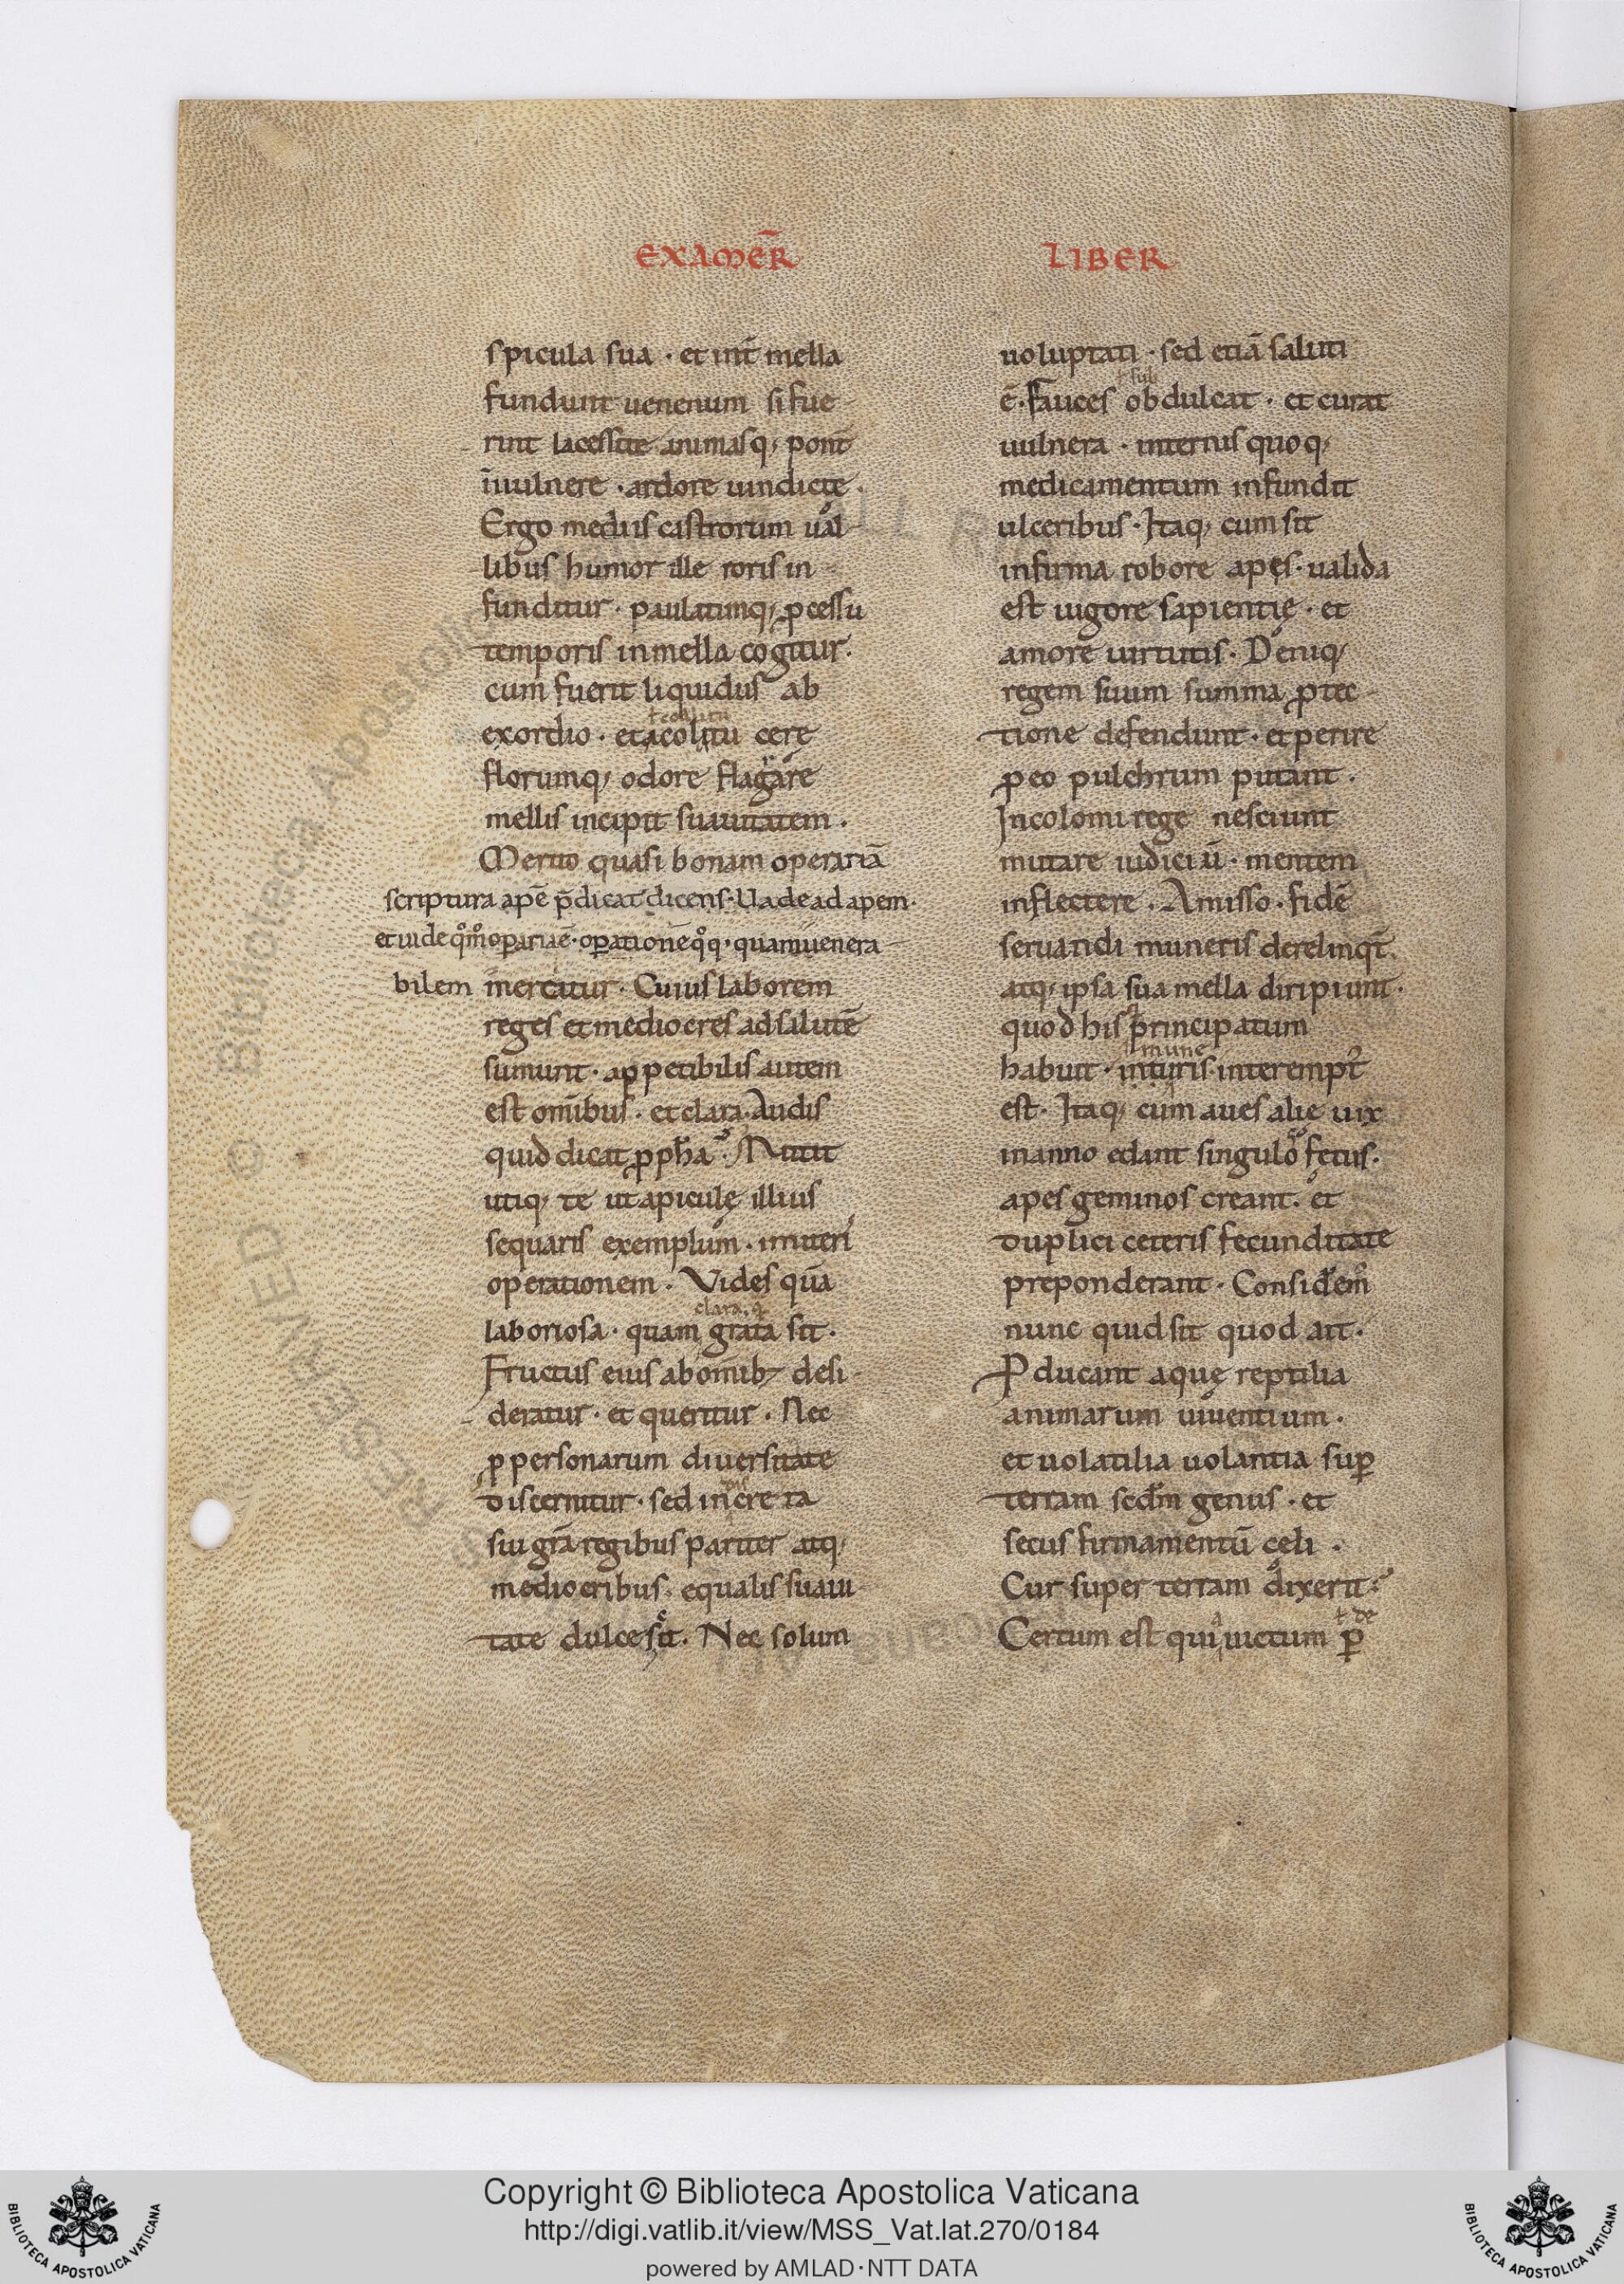 EXAMER̄
spicula sua · et int̄ mella
fundunt uenenum si fue-
rint lacessite animasq; ponт̄
īuulnere · ardore uindicte.
Ergo mediis castrorum ual-
libus humor ille roris in-
funditur · paulatimq; ꝓcessu
temporis inmella cogitur.
cum fuerit liquidus ab
exordio · et acolitu cere
florumq; odore flagare
mellis incipit suauitatem.
Merito quasi bonam operariā
scriptura apē p̄dicat dicens · Uade ad apem·
et uide qͦmͦ opariaē · oꝑationē qͦq; quam uenera-
bilem mercitur. Cuius laborem
reges et mediocres ad salutē
sumunt · appetibilis autem
est omībus · et clara · Audis
quid dicat ꝓph̄a. Mittit
utiq; te ut apiculę illius
sequaris exemplum · imiteri
operationem. Vides quā
clara q̄
laboriosa · quam grata sit.
Fructus eius ab omīb; desi-
deratur · et queritur. Nec
ꝓ personarum diuersitate
discernitur · sed increta
sui grā regibus pariter atq;
mediocribus · equalis suaui-
tate dulcesit. Nec solum
LIBER
uoluptati · sed etiā saluti
ł sub
ē · Fauces obdulcat · et curat
uulnera · internis quoq;
medicamentum infundit
ulceribus · Itaq; cum sit
infirma robore apęs · ualida
est uigore sapientię · et
amore uirtutis · Deniq;
regem suum summa ꝓtec-
tione defendunt · et perire
ꝓ eo pulchrum putant.
Incolomi rege nesciunt
mutare iudiciū · mentem
inflectere. Amisso · fidē
seruandi muneris derelinqt̄.
atq; ipsa sua mella diripiunt.
quod his principatum
mune
habuit · inturis interempt᷑
est. Itaq; cum aues alie uix
inanno edant singulo fetus.
apes geminos creant. et
duplici ceteris fecunditate
preponderant. Considem᷑
nunc quid sit quod ait.
Pducant aquę reptilia
animarum uiuentium.
et uolatilia uolantia suꝑ
terram secdm̄ genus · et
secus firmamentū celi.
Cur super terram dixerit:
ł de
Certum est qui uictum ꝑ